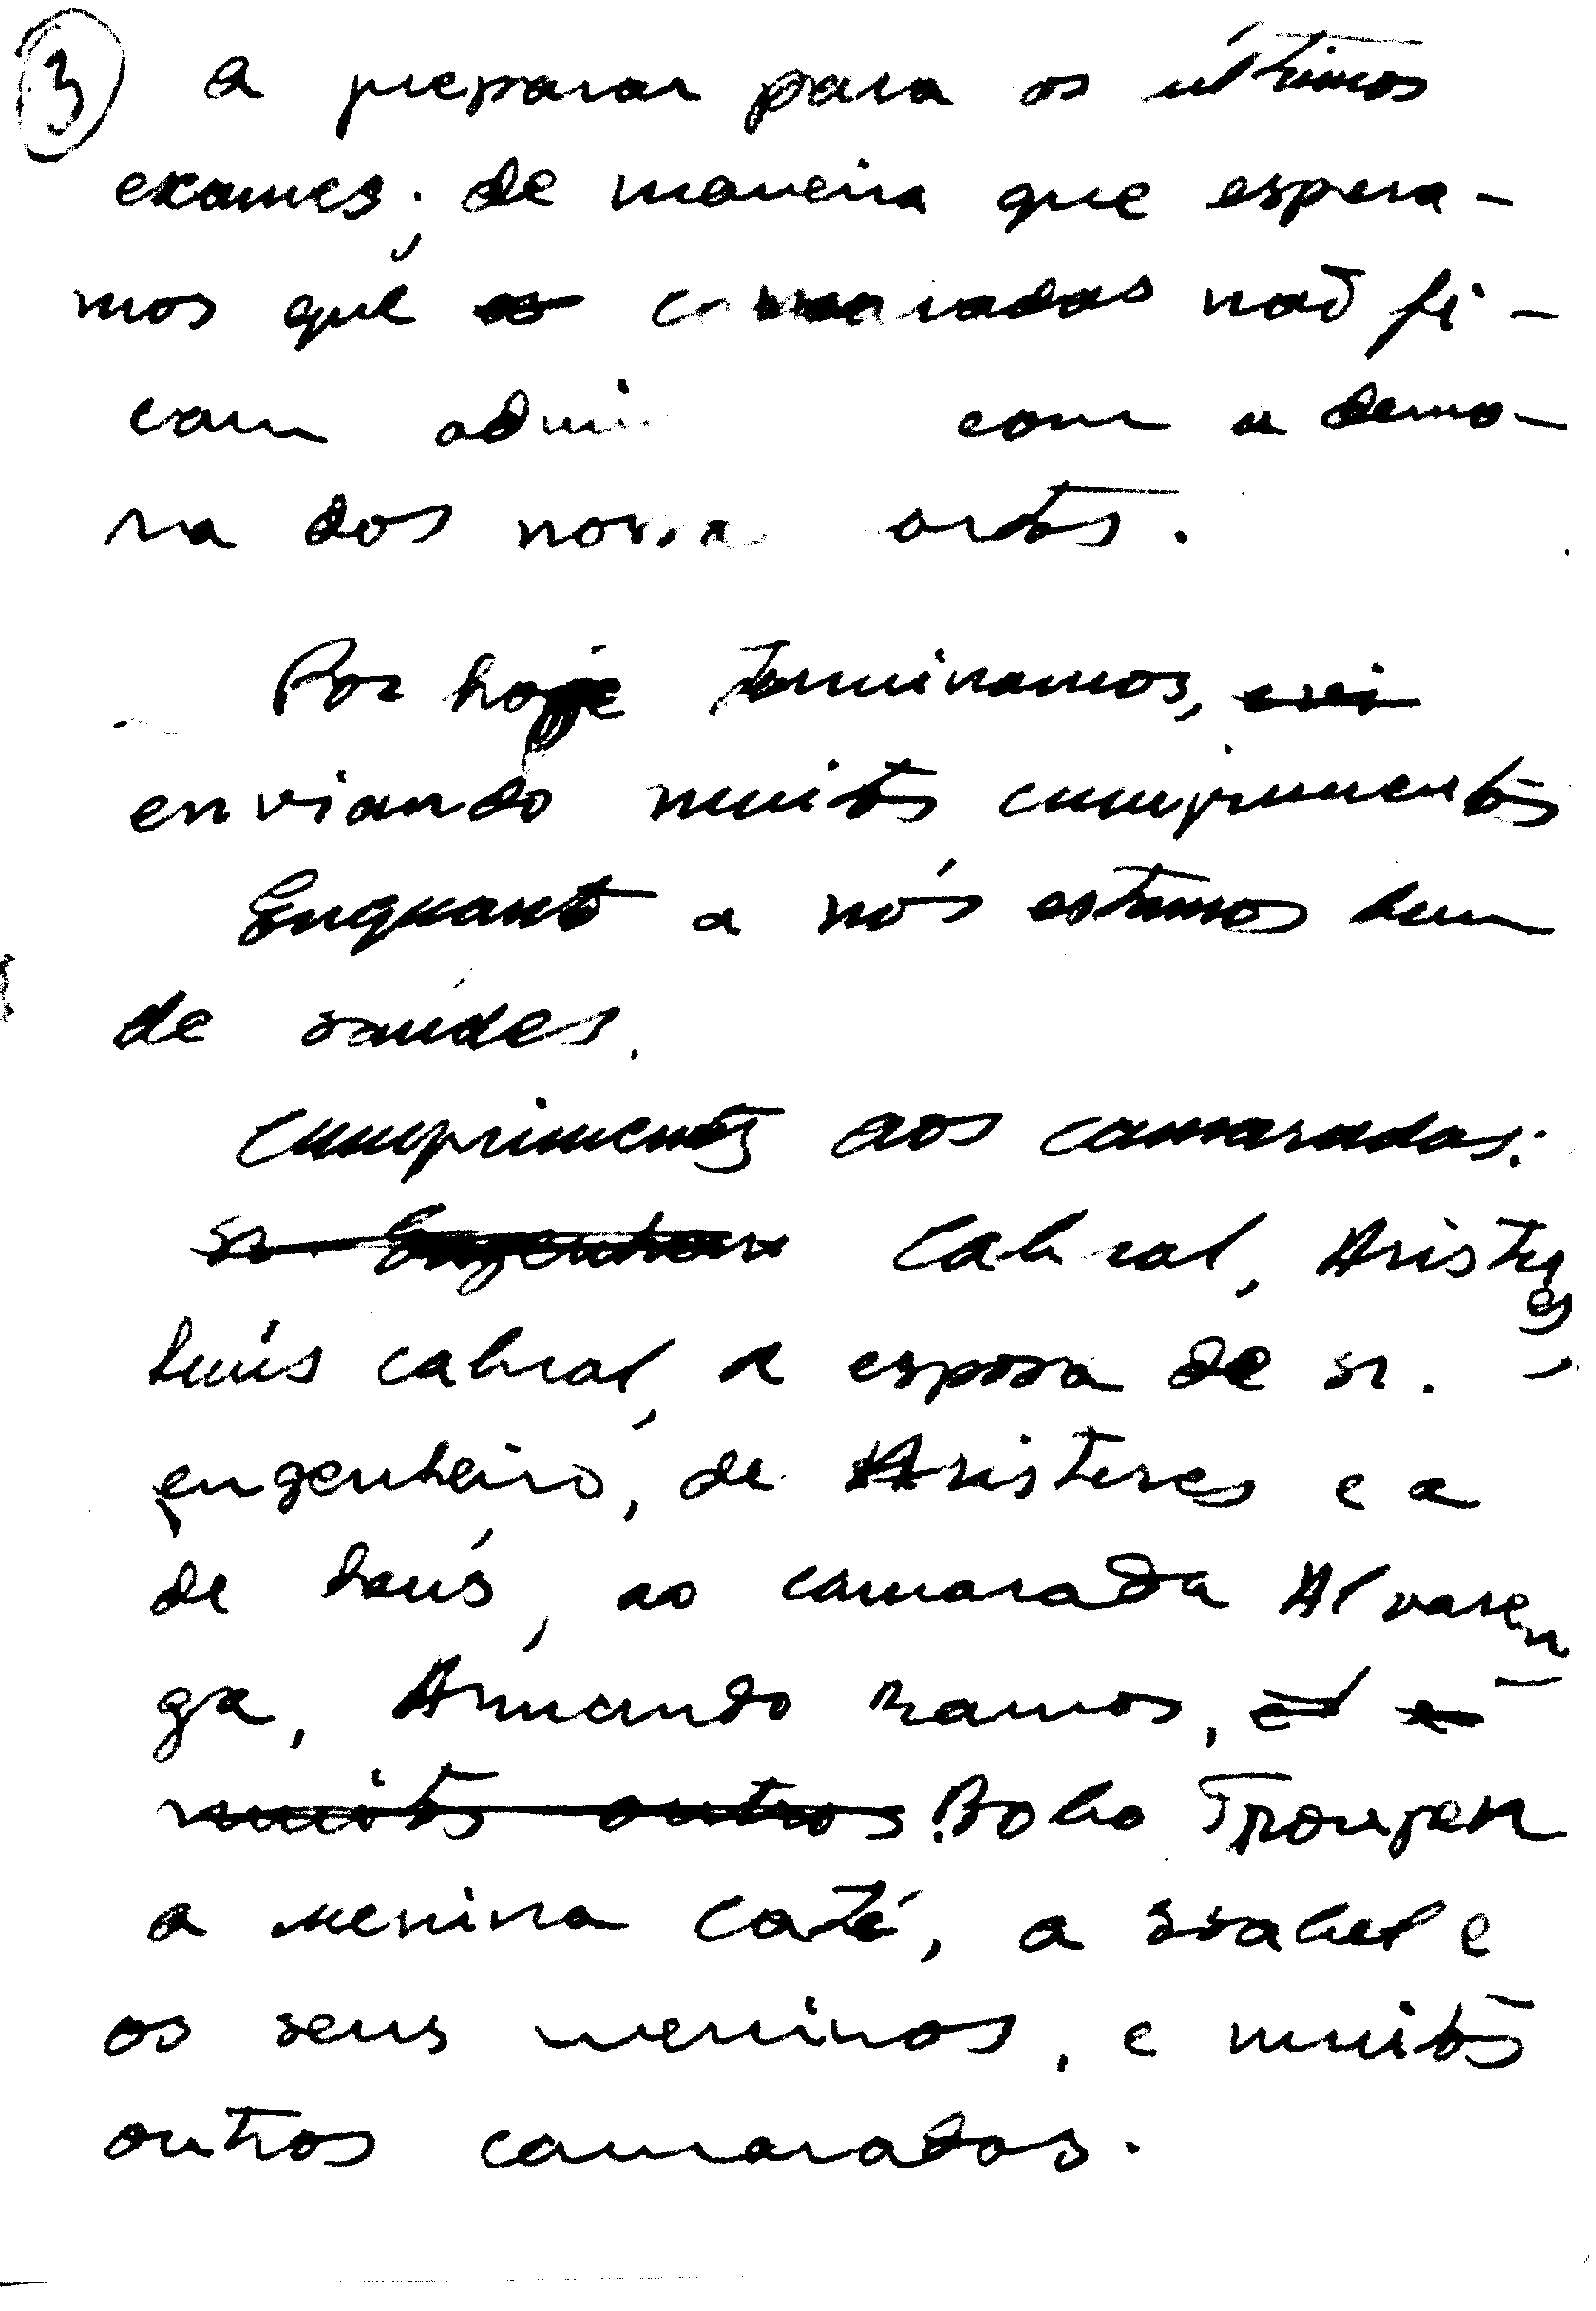 ③ a preparar para os últimos
exames; de maneira que espera-
mos que os camaradas não fi-
cam com a demo-
ra dos
Por hoje terminamos,
enviando muitos cumprimentos
Enquanto a nós estamos bem
de saúdes.
Cumprimentos aos camaradas:
sr. Engenheiro Cabral, Aristeres,
Luís Cabral, a esposa de sr.
engenheiro, de Aristeres e a
de Luís, ao camarada Alvaren
ga, Armando Ramos,
muitos outros Bobo
a menina Caté, a Isabel e
os seus meninos, e muitos
outros camaradas.